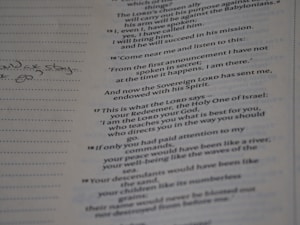 things?
The LORD's chosen ally
will carry out his purpose against
his arm will be against the Babylonians.
15 I, even I, have spoken;
yes, I have called him.
I will bring him,
and he will succeed in his mission.
16 'Come near me and listen to this:
'From the first announcement I have not
spoken in secret;
at the time it happens, I am there.'
And now the Sovereign LORD has sent me,
endowed with his Spirit.
17 This is what the LORD says –
your Redeemer, the Holy One of Israel:
'I am the LORD your God,
who teaches you what is best for you,
who directs you in the way you should
go.
18 If only you had paid attention to my
commands,
your peace would have been like a river,
your well-being like the waves of the
sea.
19 Your descendants would have been like
the sand,
your children like its numberless
grains;
their name would never be blotted out
nor destroyed from before me.'
stay
go